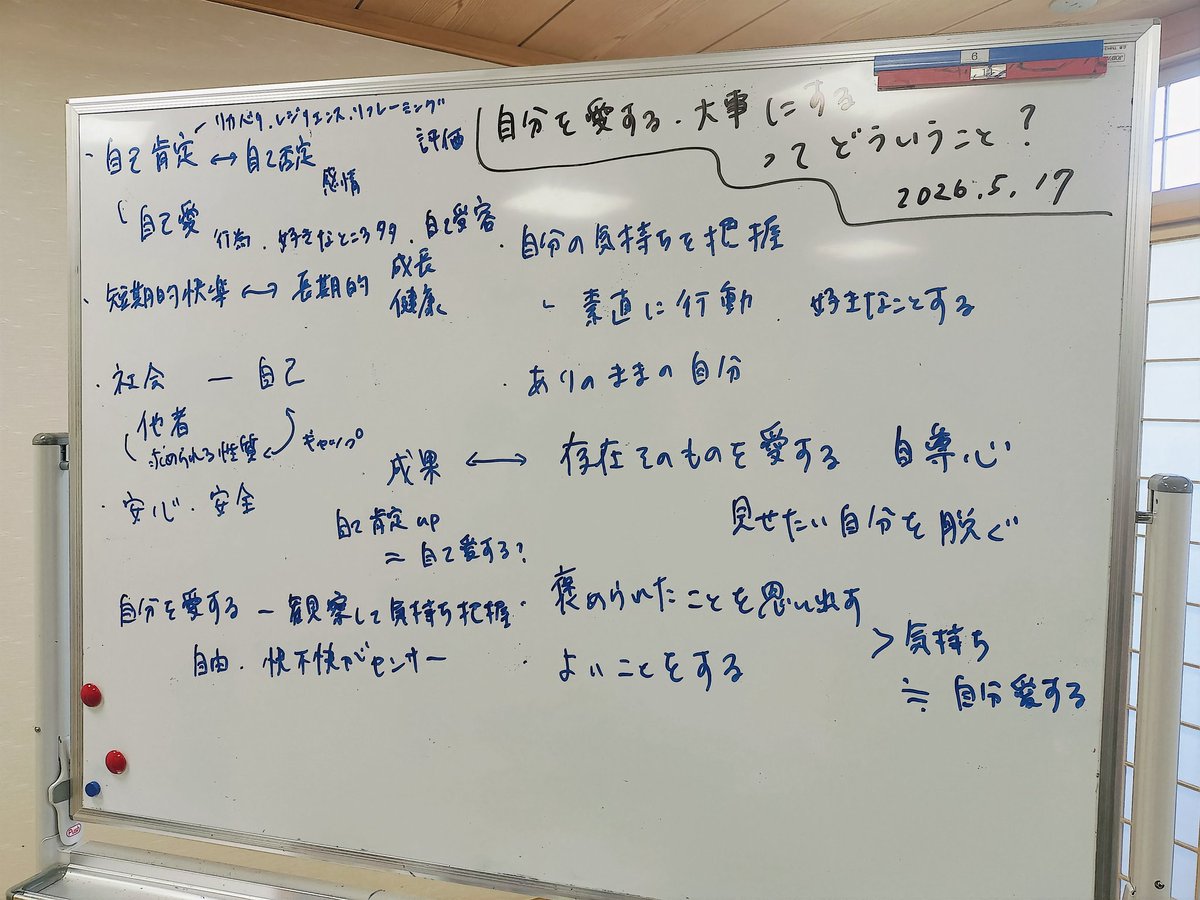 自分を愛する・大事にする
ってどういうこと?
2026.5.17
リカバリ、レジリエンス、リフレーミング
・自己肯定 ↔ 自己否定
評価
感情
自己愛 行為、好きなところ、自己受容
・短期的快楽 ↔ 長期的 成長
健康
・社会 ー 自己
他者
求められる性質
ギャップ
・安心・安全
成果 ↔ 存在そのものを愛する 自尊心
自己肯定up
= 自己愛する?
自分を愛する ー 観察して気持ち把握
自由・快不快がセンサー
・自分の気持ちを把握
素直に行動、好きなことする
・ありのままの自分
見せたい自分を脱ぐ
・褒められたことを思い出す
・よいことをする
> 気持ち
≒ 自分愛する
6
Push